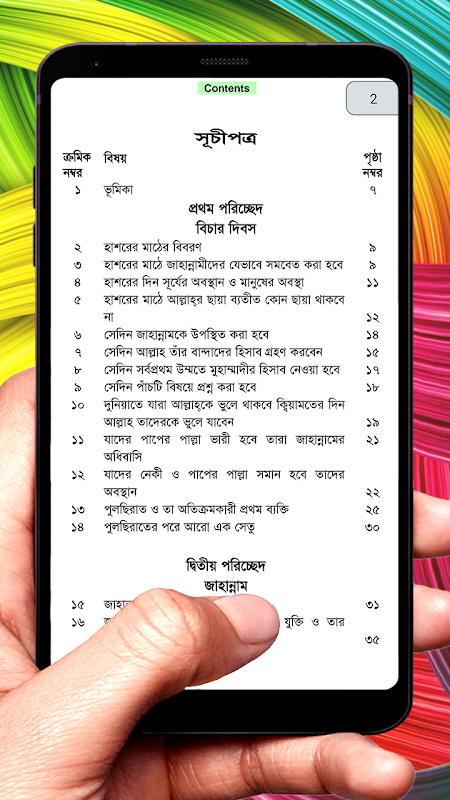 Contents
2
সূচীপত্র
ক্রমিক বিষয় পৃষ্ঠা
নম্বর নম্বর
১ ভূমিকা ৭
প্রথম পরিচ্ছেদ
বিচার দিবস
২ হাশরের মাঠের বিবরণ ৯
৩ হাশরের মাঠে জাহান্নামীদের যেভাবে সমবেত করা হবে ৯
৪ হাশরের দিন সূর্যের অবস্থান ও মানুষের অবস্থা ১১
৫ হাশরের মাঠে আল্লাহ্‌র ছায়া ব্যতীত কোন ছায়া থাকবে
না ১২
৬ সেদিন জাহান্নামকে উপস্থিত করা হবে ১৪
৭ সেদিন আল্লাহ তাঁর বান্দাদের হিসাব গ্রহণ করবেন ১৫
৮ সেদিন সর্বপ্রথম উম্মতে মুহাম্মাদীর হিসাব নেওয়া হবে ১৭
৯ সেদিন পাঁচটি বিষয়ে প্রশ্ন করা হবে ১৮
১০ দুনিয়াতে যারা আল্লাহ্‌কে ভুলে থাকবে ক্বিয়ামতের দিন
আল্লাহ তাদেরকে ভুলে যাবেন ১৯
১১ যাদের পাপের পাল্লা ভারী হবে তারা জাহান্নামের ২১
অধিবাসি
১২ যাদের নেকী ও পাপের পাল্লা সমান হবে তাদের
অবস্থান ২২
১৩ পুলছিরাত ও তা অতিক্রমকারী প্রথম ব্যক্তি ২৫
১৪ পুলছিরাতের পরে আরো এক সেতু ৩০
দ্বিতীয় পরিচ্ছেদ
জাহান্নাম
১৫ ৩১
১৬ যুক্তি ও তার
৩৫